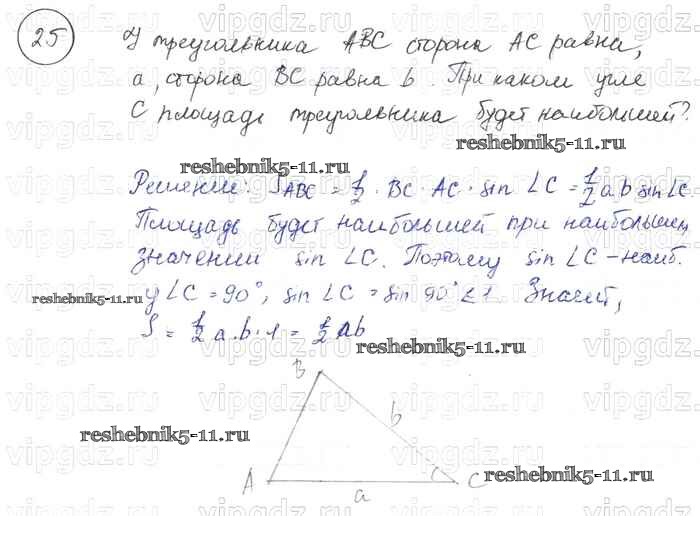 25
У треугольника ABC сторона AC равна,
a, сторона BC равна b. При каком угле
C площадь треугольника будет наибольшей?
reshebnik5-11.ru
Решение: S ABC = 1/2 · BC · AC · sin ∠C = 1/2 a·b sin ∠C.
Площадь будет наибольшей при наибольшем
значении sin ∠C. Поэтому sin ∠C – наиб.
reshebnik5-11.ru
у ∠C = 90°, sin ∠C = sin 90° = 1. Значит,
S = 1/2 a·b·1 = 1/2 ab
reshebnik5-11.ru
B
b
reshebnik5-11.ru
A
a
C
reshebnik5-11.ru
vipgdz.ru